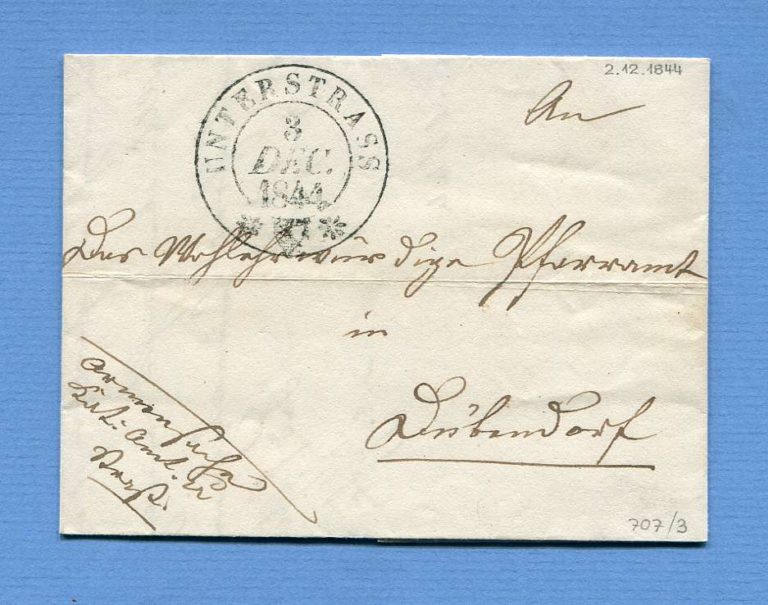 2.12.1844
UNTERSTRASS
3
DEC.
1844
An
Das Wohlehrwürdige Pfarramt
in
Dübendorf
Armensache
Amt
707/3